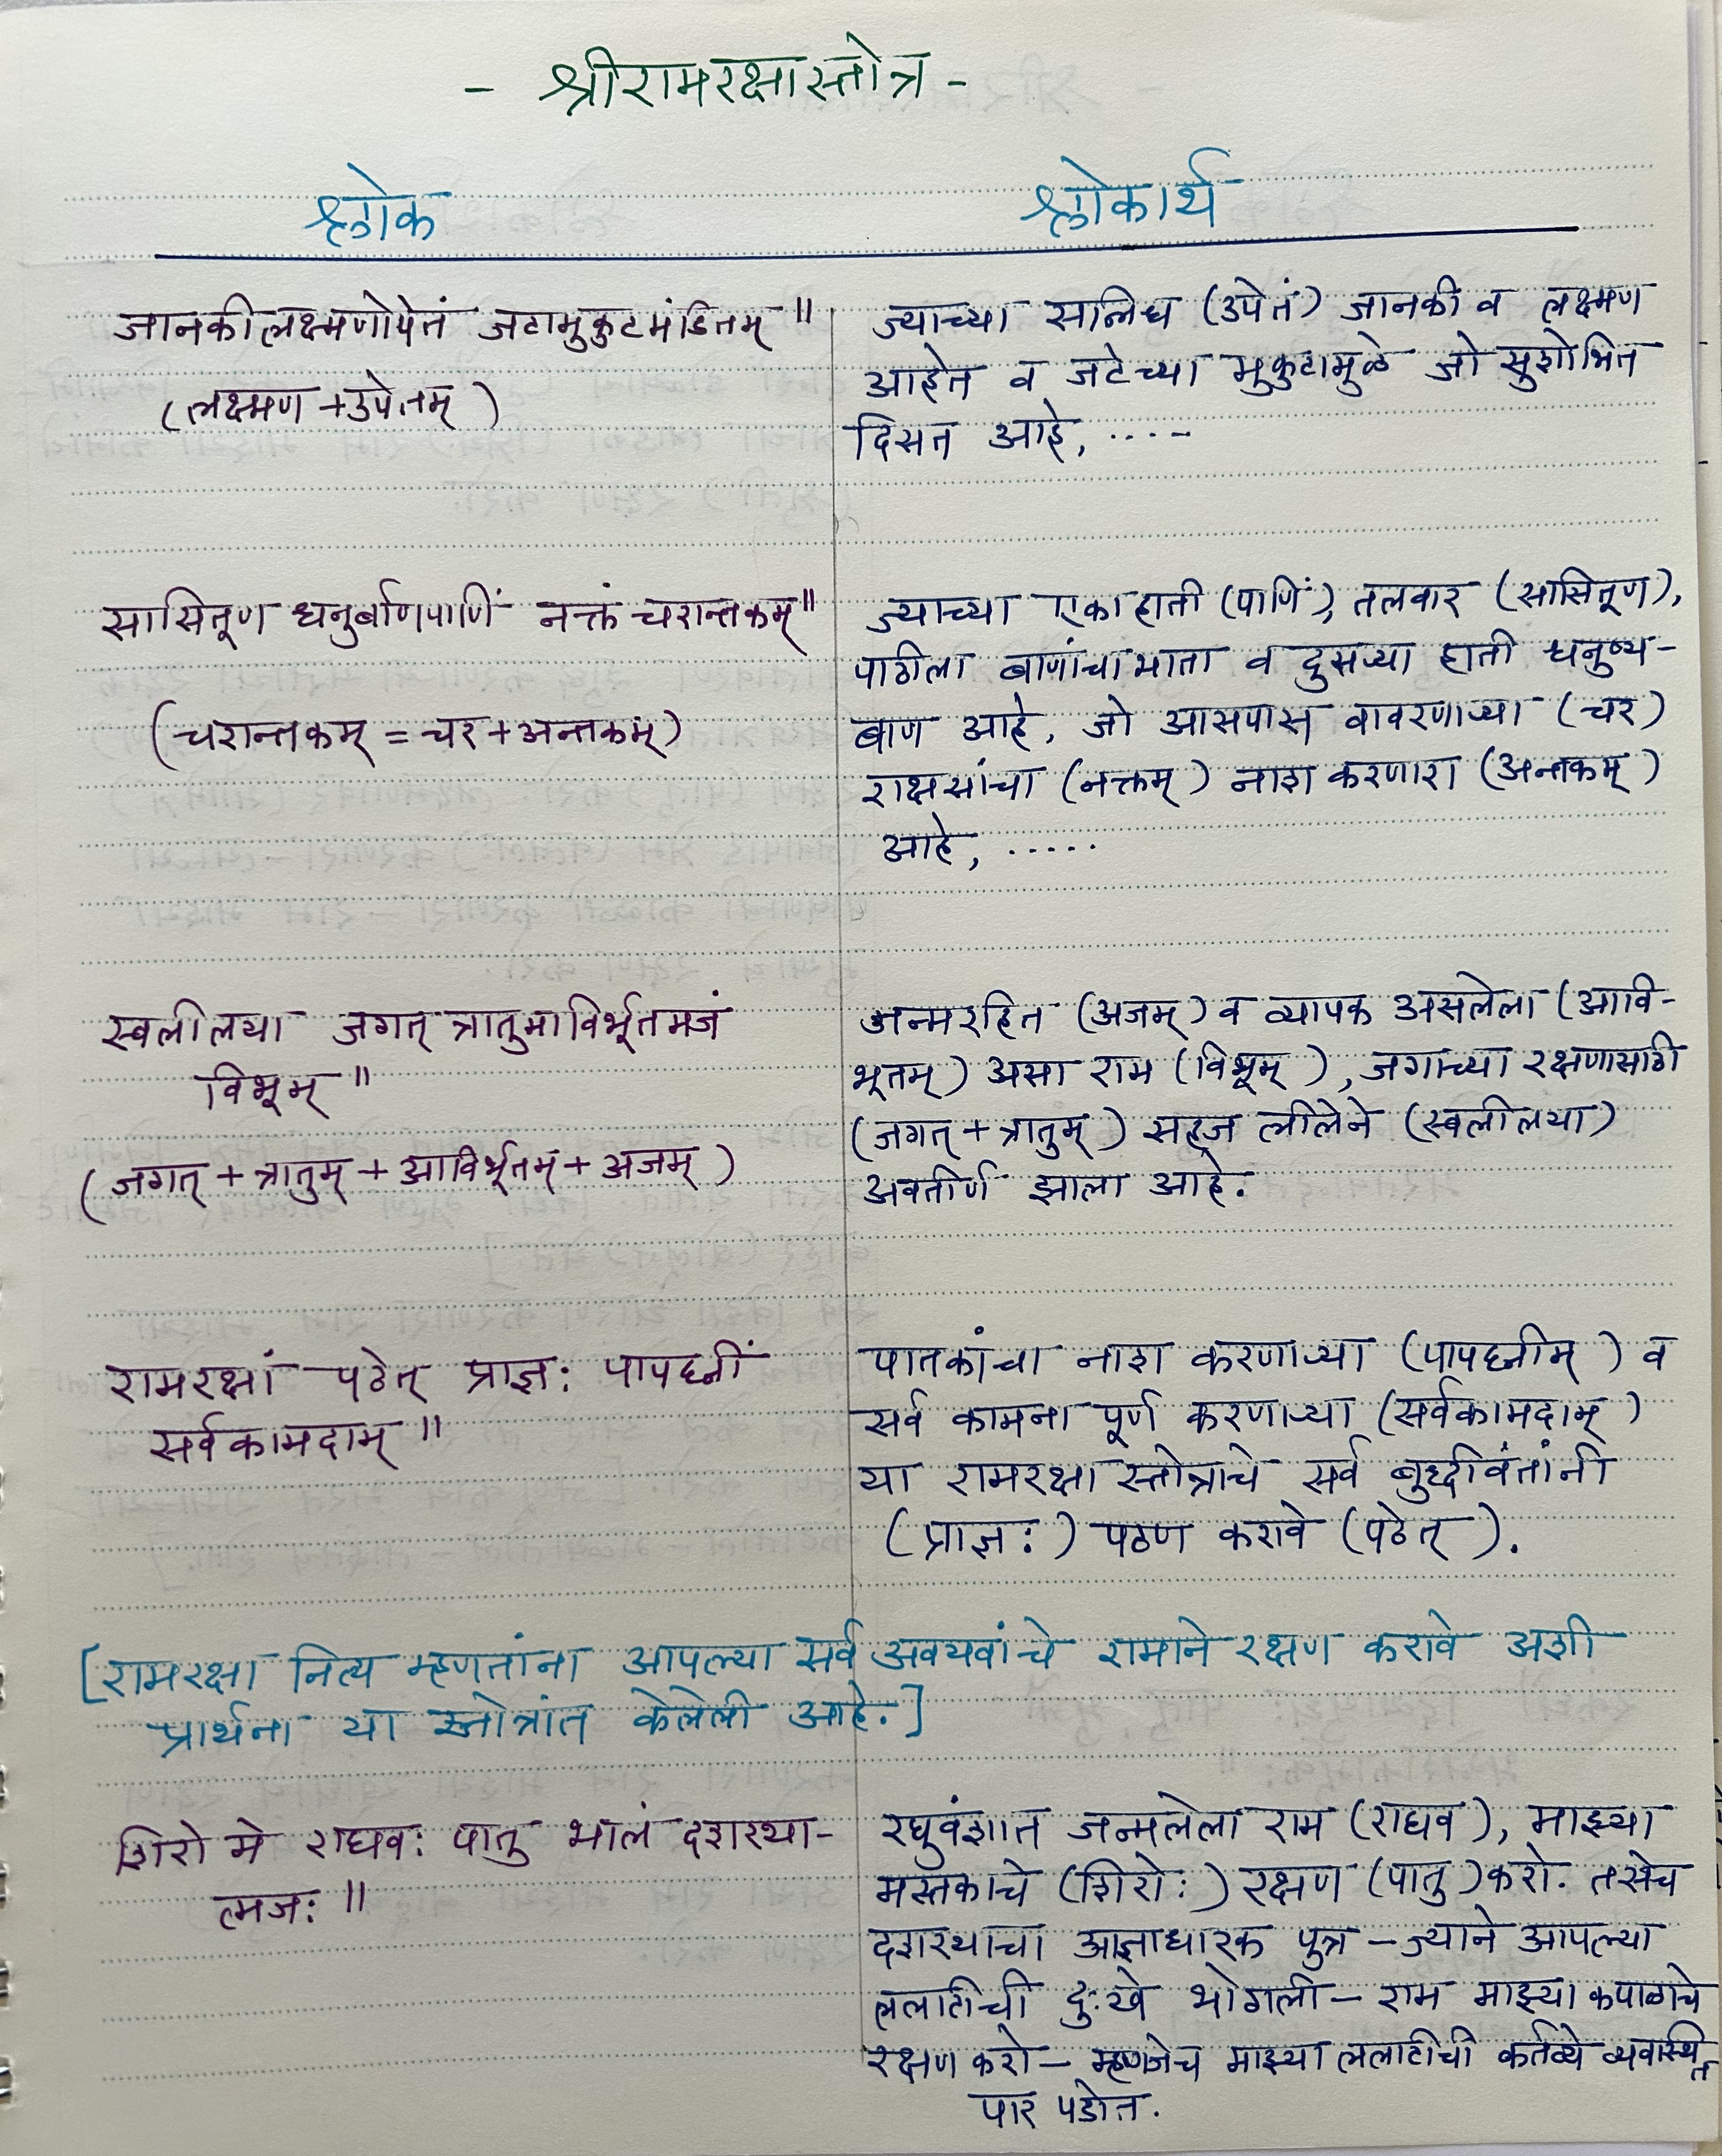 - श्रीरामरक्षास्तोत्र -
श्लोक
श्लोकार्थ
जानकीलक्ष्मणोपेतं जटामुकुटमंडितम् ॥
(लक्ष्मण + उपेतम्)
ज्याच्या सानिध (उपेतं) जानकी व लक्ष्मण
आहेत व जटेच्या मुकुटामुळे जो सुशोभित
दिसत आहे, .....
सासितूण धनुर्बाणपाणिं नक्तं चरान्तकम् ॥
(चरान्तकम् = चर + अन्तकम्)
ज्याच्या एका हाती (पाणिं), तलवार (सासितूण),
पाठीला बाणांचा भाता व दुसऱ्या हाती धनुष्य-
बाण आहे, जो आसपास वावरणाऱ्या (चर)
राक्षसांचा (नक्तम्) नाश करणारा (अन्तकम्)
आहे, .....
स्वलीलया जगत् त्रातुमाविर्भूतमजं
विभूम् ॥
(जगत् + त्रातुम् + आविर्भूतम् + अजम्)
जन्मरहित (अजम्) व व्यापक असलेला (आवि-
भूतम्) असा राम (विभूम्), जगाच्या रक्षणासाठी
(जगत् + त्रातुम्) सहज लीलेने (स्वलीलया)
अवतीर्ण झाला आहे.
रामरक्षां पठेत् प्राज्ञः पापघ्नीं
सर्वकामदाम् ॥
पातकांचा नाश करणाऱ्या (पापघ्नीम्) व
सर्व कामना पूर्ण करणाऱ्या (सर्वकामदाम्)
या रामरक्षा स्तोत्राचे सर्व बुद्धीवंतांनी
(प्राज्ञः) पठण करावे (पठेत्).
[रामरक्षा नित्य म्हणतांना आपल्या सर्व अवयवांचे रामाने रक्षण करावे अशी
प्रार्थना या स्तोत्रांत केलेली आहे.]
शिरो मे राघवः पातु भालं दशरथा-
त्मजः ॥
रघुवंशात जन्मलेला राम (राघव), माझ्या
मस्तकाचे (शिरोः) रक्षण (पातु) करो. तसेच
दशरथाचा आज्ञाधारक पुत्र - ज्याने आपल्या
ललाटीची दुःखे भोगली - राम माझ्या कपाळाचे
रक्षण करो - म्हणजेच माझ्या ललाटीची कर्तव्ये व्यवस्थित
पार पडोत.